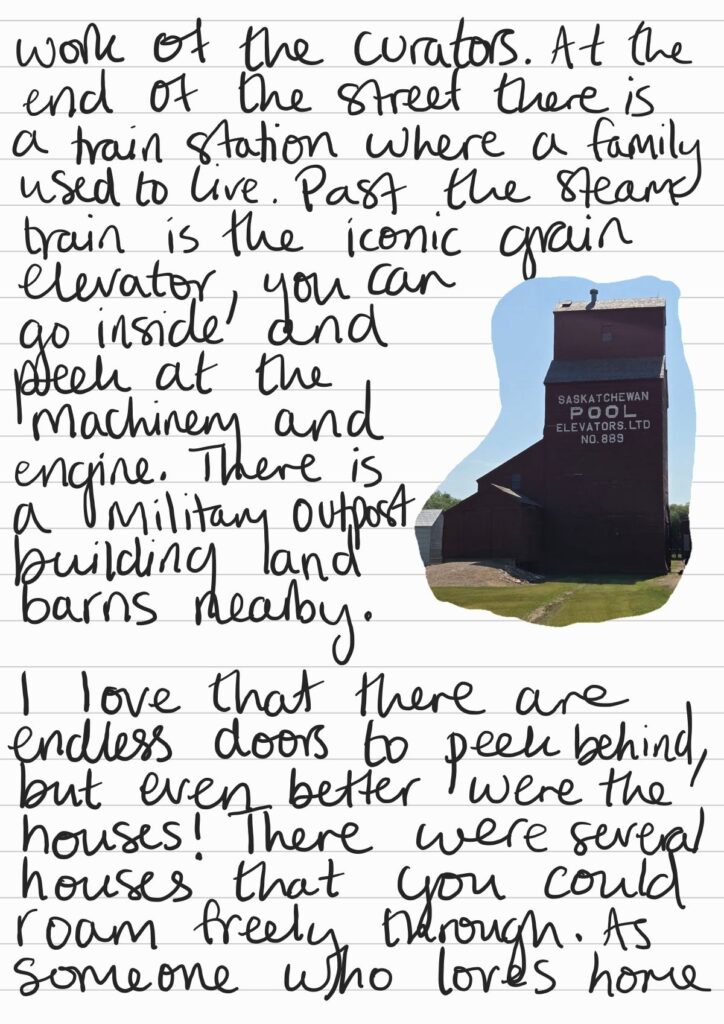 work of the curators. At the
end of the street there is
a train station where a family
used to live. Past the steam
train is the iconic grain
elevator, you can
go inside and
peek at the
machinery and
engine. There is
a military outpost
building and
barns nearby.
SASKATCHEWAN
POOL
ELEVATORS.LTD
NO.889
I love that there are
endless doors to peek behind,
but even better were the
houses! There were several
houses that you could
roam freely through. As
someone who loves home